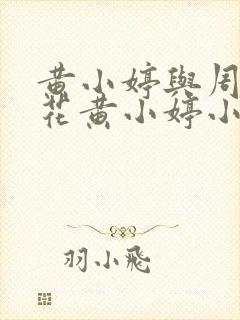 黄小婷與周
花黄小婷小
羽小飛